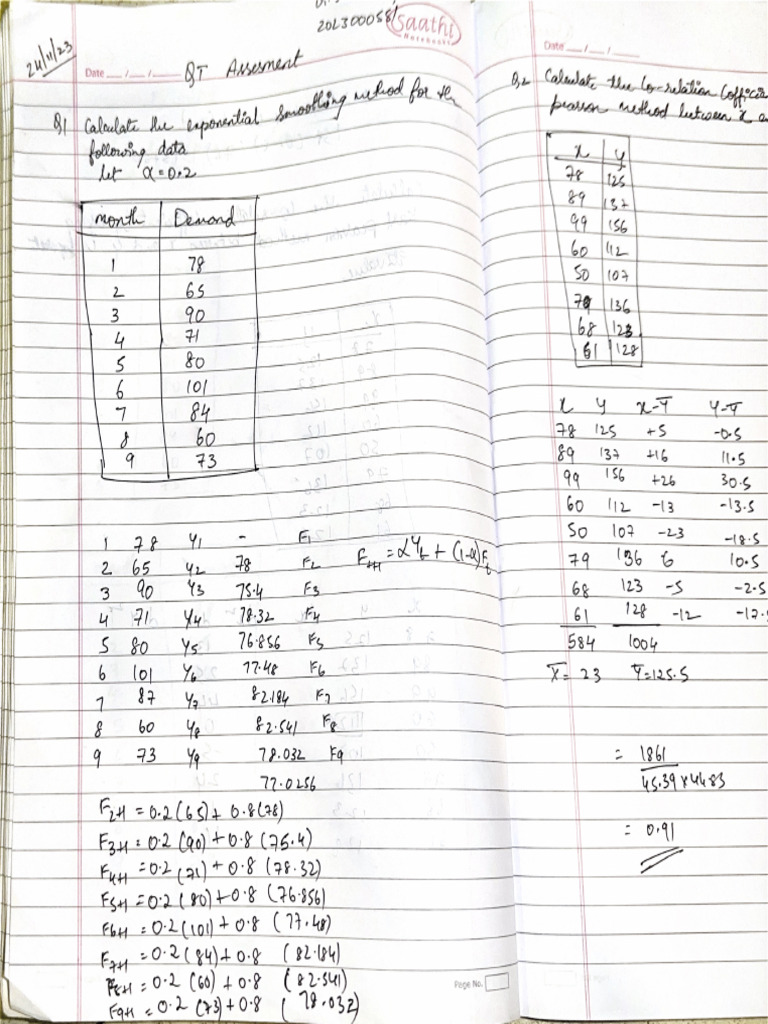 202300058
saathi
Notebooks
24/11/23
Date __/__/__
QT Assesment
Q1 Calculate the exponential smoothing method for the
following data
let α=0.2
month Demand
1 78
2 65
3 90
4 71
5 80
6 101
7 84
8 60
9 73
1 78 Y1 - F1
2 65 Y2 78 F2 Ft+1 = αYt + (1-α)Ft
3 90 Y3 75.4 F3
4 71 Y4 78.32 F4
5 80 Y5 76.856 F5
6 101 Y6 77.48 F6
7 87 Y7 82.184 F7
8 60 Y8 82.541 F8
9 73 Y9 78.032 F9
77.0256
F2+1 = 0.2 (65) + 0.8 (78)
F3+1 = 0.2 (90) + 0.8 (75.4)
F4+1 = 0.2 (71) + 0.8 (78.32)
F5+1 = 0.2 (80) + 0.8 (76.856)
F6+1 = 0.2 (101) + 0.8 (77.48)
F7+1 = 0.2 (84) + 0.8 (82.184)
F8+1 = 0.2 (60) + 0.8 (82.541)
F9+1 = 0.2 (73) + 0.8 (78.032
Page No.
Date __/__/__
Q2 Calculate the Co-relation Coffici
pearson method between x an
x y
78 125
89 137
99 156
60 112
50 107
79 136
68 123
61 128
X Y X-Y̅ Y-Y̅
78 125 +5 -0.5
89 137 +16 11.5
99 156 +26 30.5
60 112 -13 -13.5
50 107 -23 -18.5
79 136 6 10.5
68 123 -5 -2.5
61 128 -12 -12.
584 1004
X̅ = 23 Y̅=125.5
= 1861
45.39×44.83
= 0.91